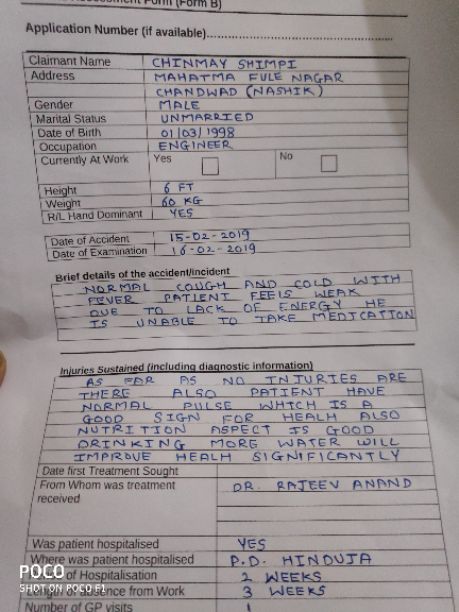 Assessment Form (Form B)
Application Number (if available)
Claimant Name CHINMAY SHIMPI
Address MAHATMA FULE NAGAR
CHANDWAD (NASHIK)
Gender MALE
Marital Status UNMARRIED
Date of Birth 01/03/1998
Occupation ENGINEER
Currently At Work Yes No
Height 6 FT
Weight 60 KG
R/L Hand Dominant YES
Date of Accident 15-02-2019
Date of Examination 16-02-2019
Brief details of the accident/incident
NORMAL COUGH AND COLD WITH
FEVER PATIENT FEELS WEAK
DUE TO LACK OF ENERGY HE
IS UNABLE TO TAKE MEDICATION
Injuries Sustained (including diagnostic information)
AS FOR AS NO INJURIES ARE
THERE ALSO PATIENT HAVE
NORMAL PULSE WHICH IS A
GOOD SIGN FOR HEALH ALSO
NUTRITION ASPECT IS GOOD
DRINKING MORE WATER WILL
IMPROVE HEALH SIGNIFICANTLY
Date first Treatment Sought
From Whom was treatment DR. RAJEEV ANAND
received
Was patient hospitalised YES
Where was patient hospitalised P.D. HINDUJA
of Hospitalisation 2 WEEKS
Length of absence from Work 3 WEEKS
Number of GP visits 1
POCO
SHOT ON POCO F1